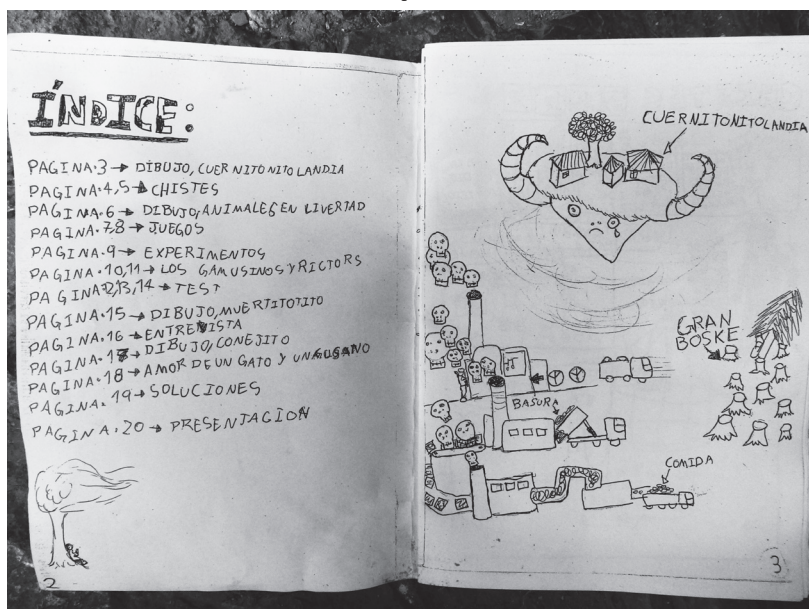 ÍNDICE:
PAGINA.3→ DIBUJO, CUERNITONITOLANDIA
PAGINA.4,5→ CHISTES
PAGINA.6→ DIBUJO, ANIMALES EN LIVERTAD
PAGINA.7,8→ JUEGOS
PAGINA.9→ EXPERIMENTOS
PAGINA.10,11→ LOS GAMUSINOS Y RICTORS
PAGINA.12,13,14→ TEST
PAGINA.15→ DIBUJO, MUERTITOTITO
PAGINA.16→ ENTREVISTA
PAGINA.17→ DIBUJO, CONEJITO
PAGINA.18→ AMOR DE UN GATO Y UN GUSANO
PAGINA.19→ SOLUCIONES
PAGINA.20→ PRESENTACION
2
CUERNITONITOLANDIA
GRAN
BOSKE
BASURA
COMIDA
3